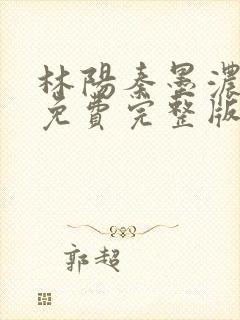 林陽秦墨濃
免費完整版
郭超